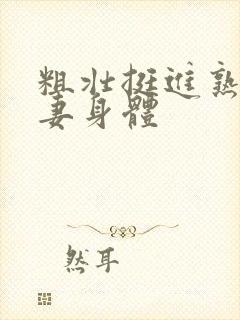 粗壯挺進熟
妻身體
然耳